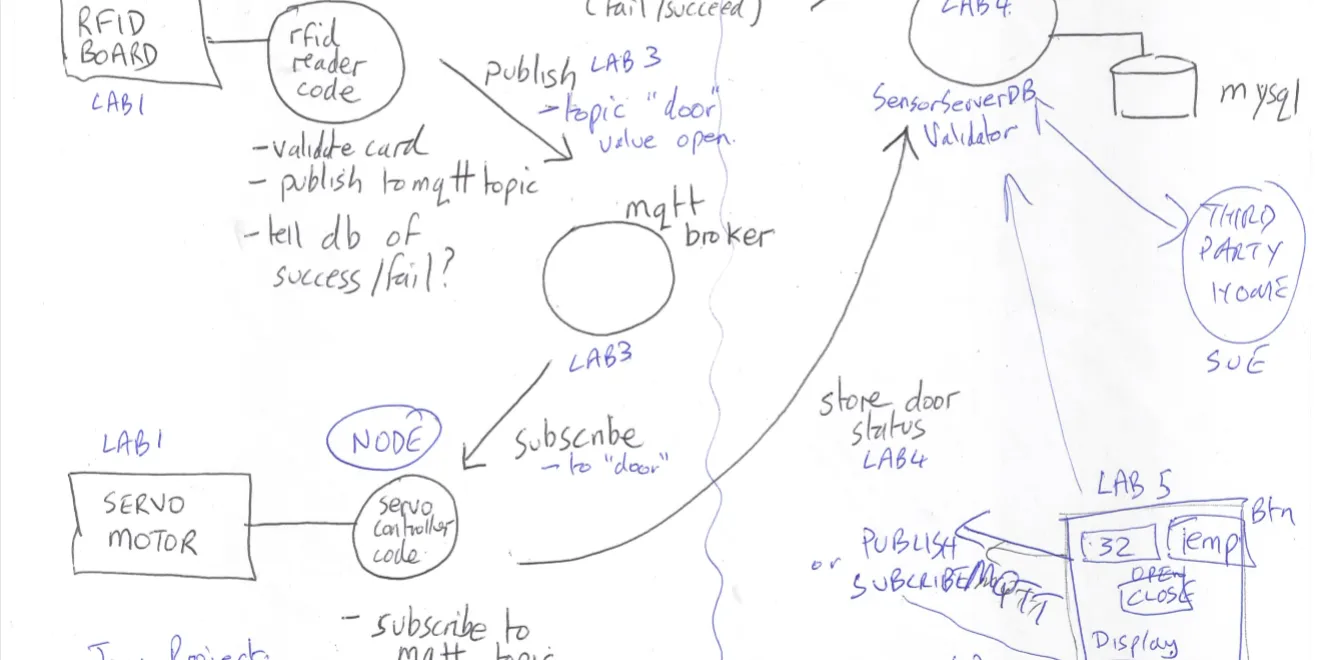 RFID
BOARD
LAB1
rfid
reader
code
(fail/succeed)
publish LAB 3
->topic "door"
value open.
- validate card
- publish to mqtt topic
- tell db of
success/fail?
mqtt
broker
LAB3
LAB 4
SensorServerDB
Validator
mysql
THIRD
PARTY
HOME
SUE
LAB1
SERVO
MOTOR
NODE
servo
controller
code
subscribe
- to "door"
- subscribe to
mqtt topic
store door
status
LAB4
LAB 5
Btn
32
Temp
OPEN
CLOSE
Display
PUBLISH
or
SUBCRIBE MQTT